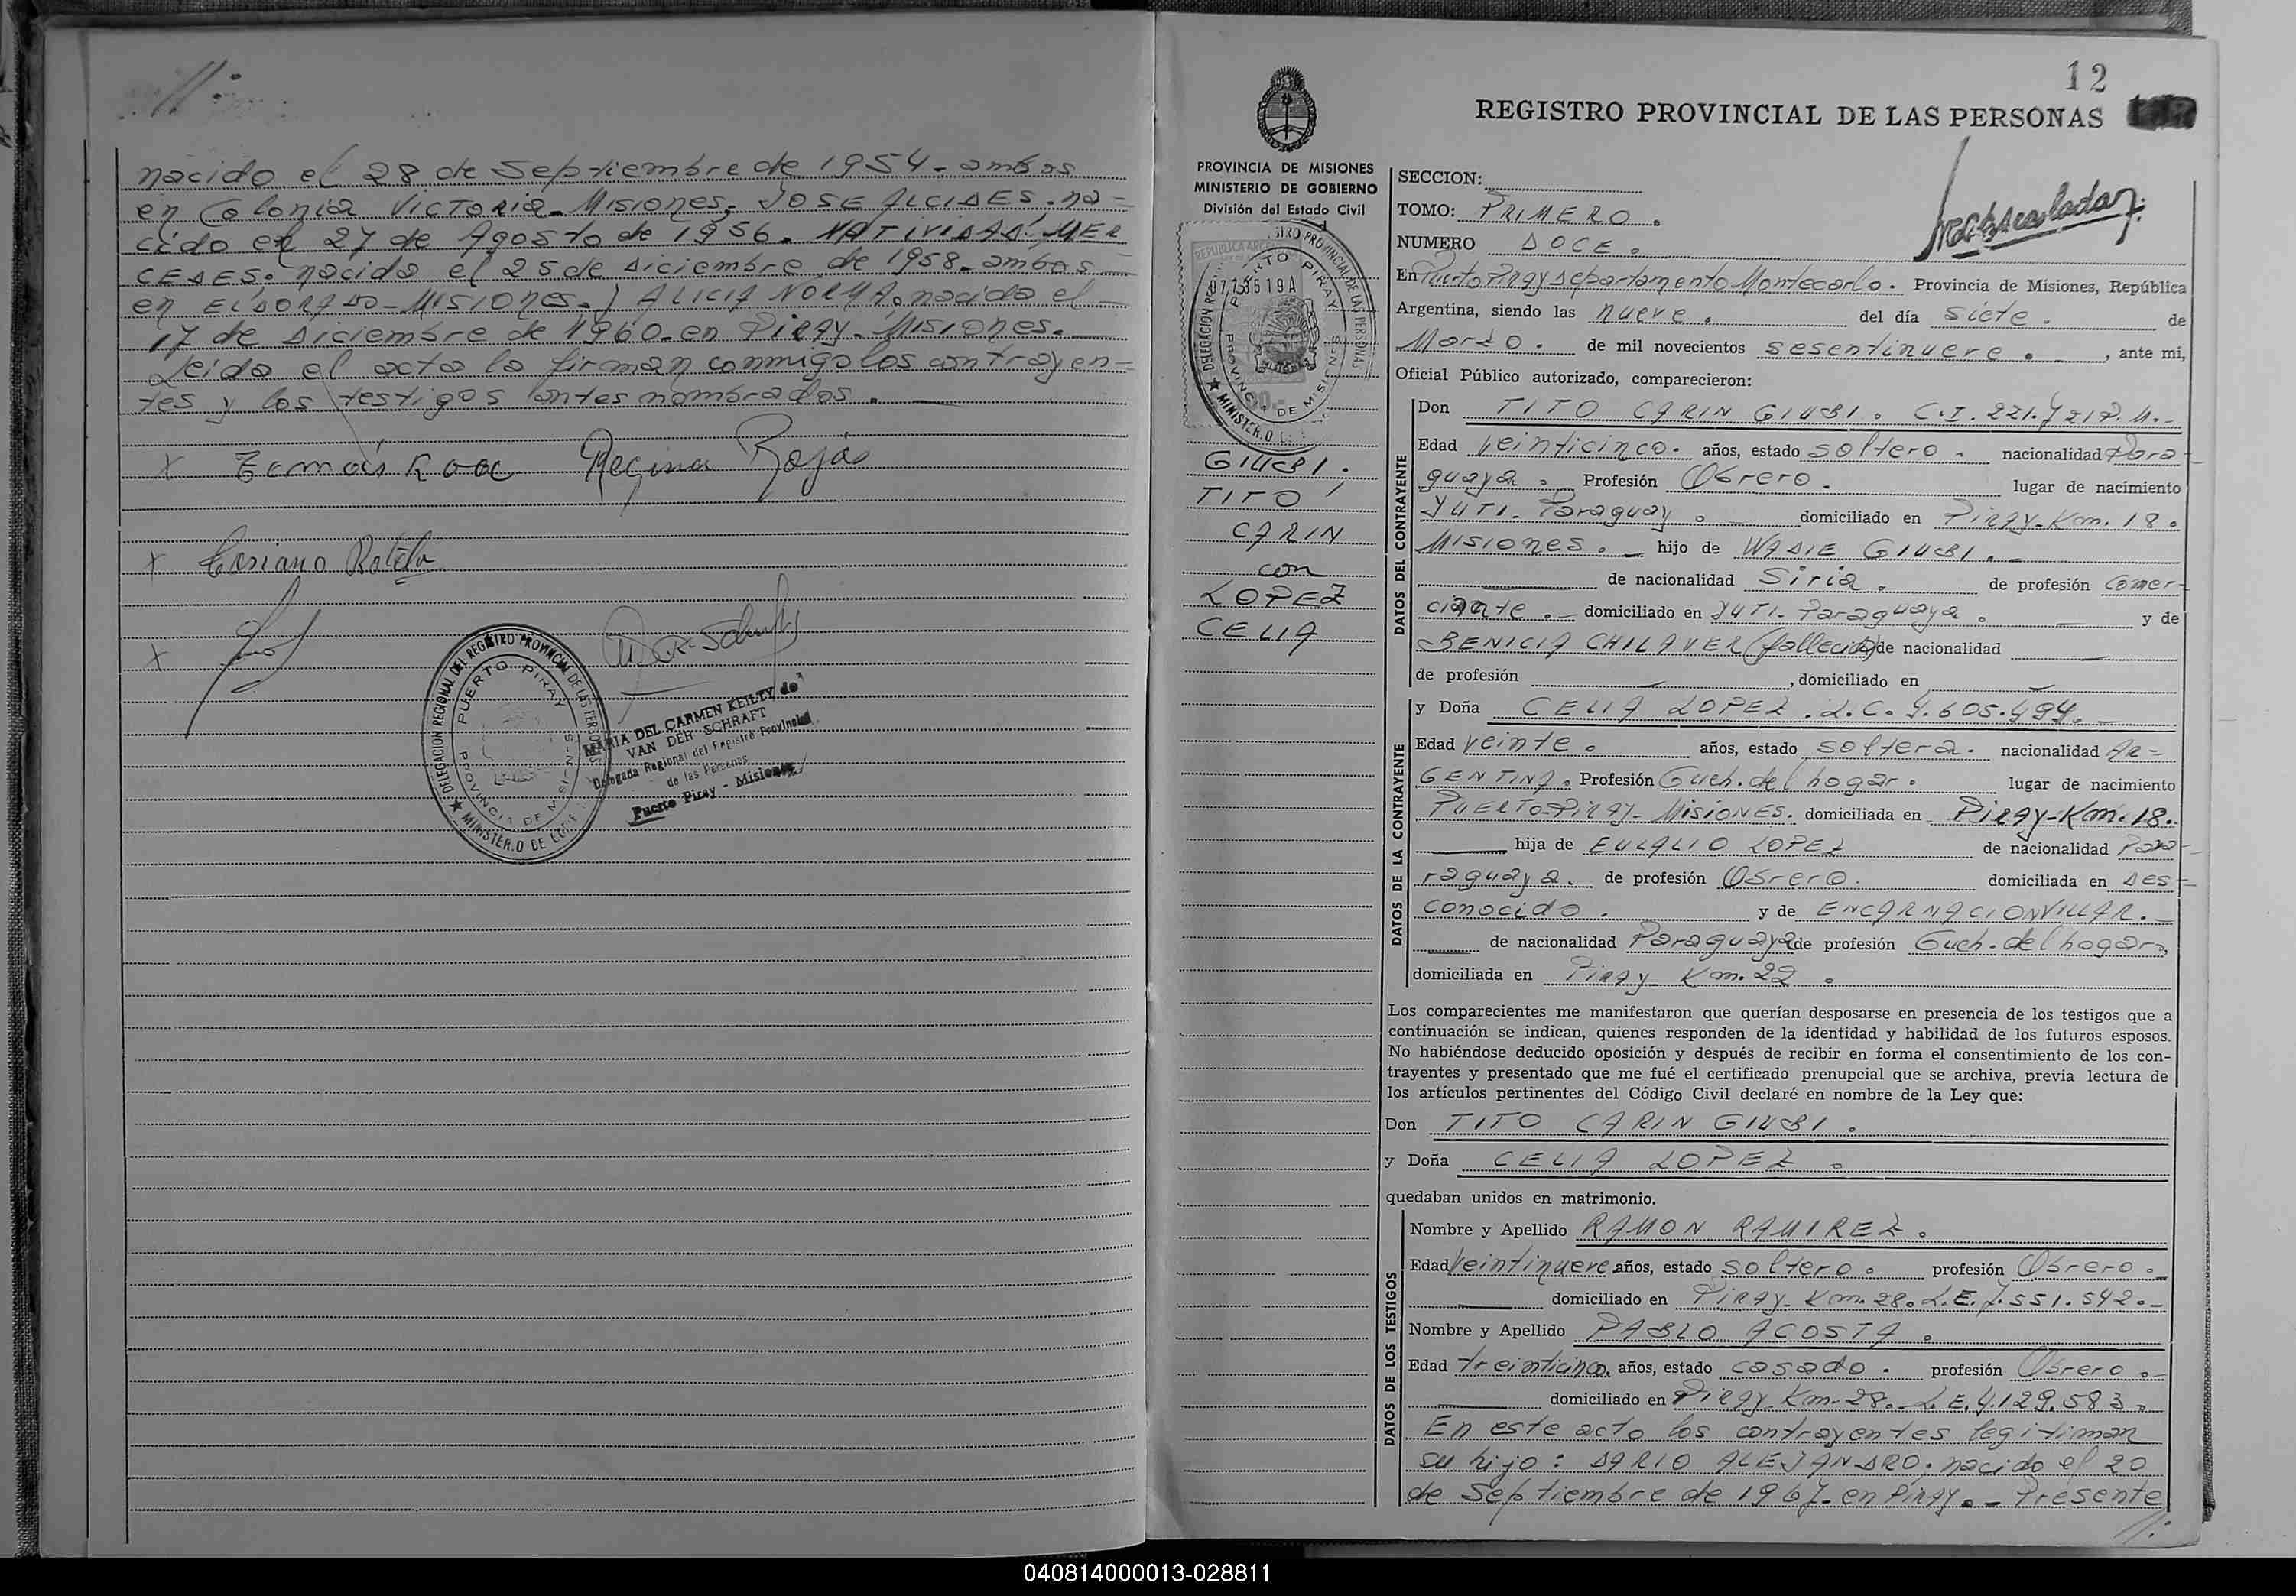 nacido el 28 de Septiembre de 1954. ambos
en Colonia VICTORIA. MISIONES. JOSE ALCIDES. na-
cido el 27 de Agosto de 1956. NATIVIDAD MER
CEDES. nacida el 25 de diciembre de 1958. ambos
en ELDORADO - MISIONES. y ALICIA NORMA. nacida el
17 de Diciembre de 1960. en PIRAY. MISIONES.
Leida el acta la firman conmigo los contrayen-
tes y los testigos antes nombrados.
Regina Rojas
MARIA DEL CARMEN KEILTY de
VAN DER SCHRAFT
Delegada Regional del Registro Provincial
de las Personas
Puerto Piray - Misiones
DELEGACION REGIONAL DEL REGISTRO PROVINCIAL DE LAS PERSONAS
PUERTO PIRAY
PROVINCIA DE MISIONES
MINISTERIO DE
12
REGISTRO PROVINCIAL DE LAS PERSONAS
PROVINCIA DE MISIONES
MINISTERIO DE GOBIERNO
División del Estado Civil
REPUBLICA ARGENTINA
0773519A
GIUBI.
TITO
CARIN
con
LOPEZ
CELIA
SECCION:
TOMO: PRIMERO.
NUMERO DOCE.
En Puerto Piray departamento Montecarlo. Provincia de Misiones, República
Argentina, siendo las nueve. del día siete. de
Marzo. de mil novecientos sesentinueve. , ante mi,
Oficial Público autorizado, comparecieron:
DATOS DEL CONTRAYENTE
Don TITO CARIN GIUBI. C.I. 221.721 P. M.-
Edad veinticinco. años, estado soltero. nacionalidad Para
guaya. Profesión Obrero. lugar de nacimiento
YUTI. Paraguay. domiciliado en PIRAY-Km. 18.
MISIONES. hijo de WADIE GIUBI.
de nacionalidad Siria. de profesión comer-
ciante. domiciliado en YUTI. Paraguaya. y de
BENICIA CHILAVER (fallecida) de nacionalidad
de profesión , domiciliado en
DATOS DE LA CONTRAYENTE
y Doña CELIA LOPEZ. L.C. 4.605.494.
Edad veinte. años, estado soltera. nacionalidad AR-
GENTINA. Profesión Queh. del hogar. lugar de nacimiento
PUERTO-PIRAY- MISIONES. domiciliada en PIRAY-Km. 18.
hija de EULALIO LOPEZ de nacionalidad Para-
raguaya. de profesión Obrero. domiciliada en Des-
conocido. y de ENCARNACION VILLAR.
de nacionalidad Paraguaya de profesión Queh. del hogar,
domiciliada en PIRAY Km. 22.
Los comparecientes me manifestaron que querían desposarse en presencia de los testigos que a
continuación se indican, quienes responden de la identidad y habilidad de los futuros esposos.
No habiéndose deducido oposición y después de recibir en forma el consentimiento de los con-
trayentes y presentado que me fué el certificado prenupcial que se archiva, previa lectura de
los artículos pertinentes del Código Civil declaré en nombre de la Ley que:
Don TITO CARIN GIUBI.
y Doña CELIA LOPEZ.
quedaban unidos en matrimonio.
DATOS DE LOS TESTIGOS
Nombre y Apellido RAMON RAMIREZ.
Edad veintinueve años, estado soltero. profesión Obrero.
domiciliado en PIRAY- Km. 28. L.E. 7.551.542.-
Nombre y Apellido PABLO ACOSTA.
Edad treinticinco. años, estado casado. profesión Obrero.
domiciliado en PIRAY Km-28. L.E. 4.129.583.
En este acto los contrayentes legitiman
su hijo: DARIO ALEJANDRO. nacido el 20
de Septiembre de 1967. en PIRAY. - Presente
//.
040814000013-028811